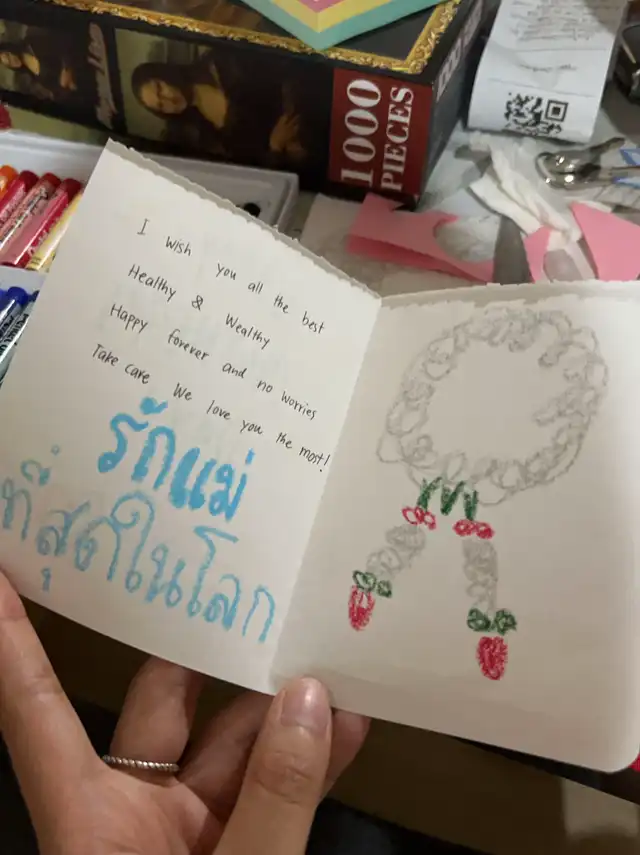 1000
PIECES
I wish you all the best
Healthy & Wealthy
Happy forever and no worries
Take care We love you the most!
รักแม่
ที่สุดในโลก